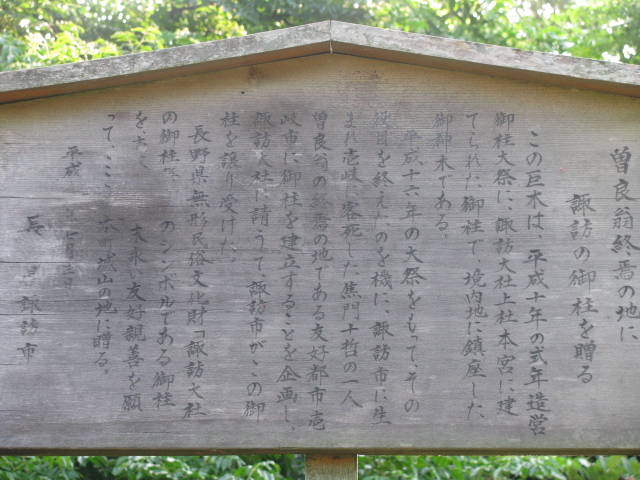 曽良翁終焉の地に
諏訪の御柱を贈る
この巨木は、平成十年の式年造営
御柱大祭に、諏訪大社上社本宮に建
てられた御柱で、境内地に鎮座した、
御神木である。
平成十六年の大祭をもって、その
役目を終えたのを機に、諏訪市に生
まれ壱岐に客死した蕉門十哲の一人
曽良翁の終焉の地である友好都市壱
岐市に御柱を建立することを企画し、
諏訪大社に請うて、諏訪市が、この御
柱を譲り受けた。
長野県無形民俗文化財「諏訪大社
の御柱 のシンボルである御柱
を、 末永い友好親善を願
って、ここ 本町城山の地に贈る。
平成 月 日
長 県諏訪市